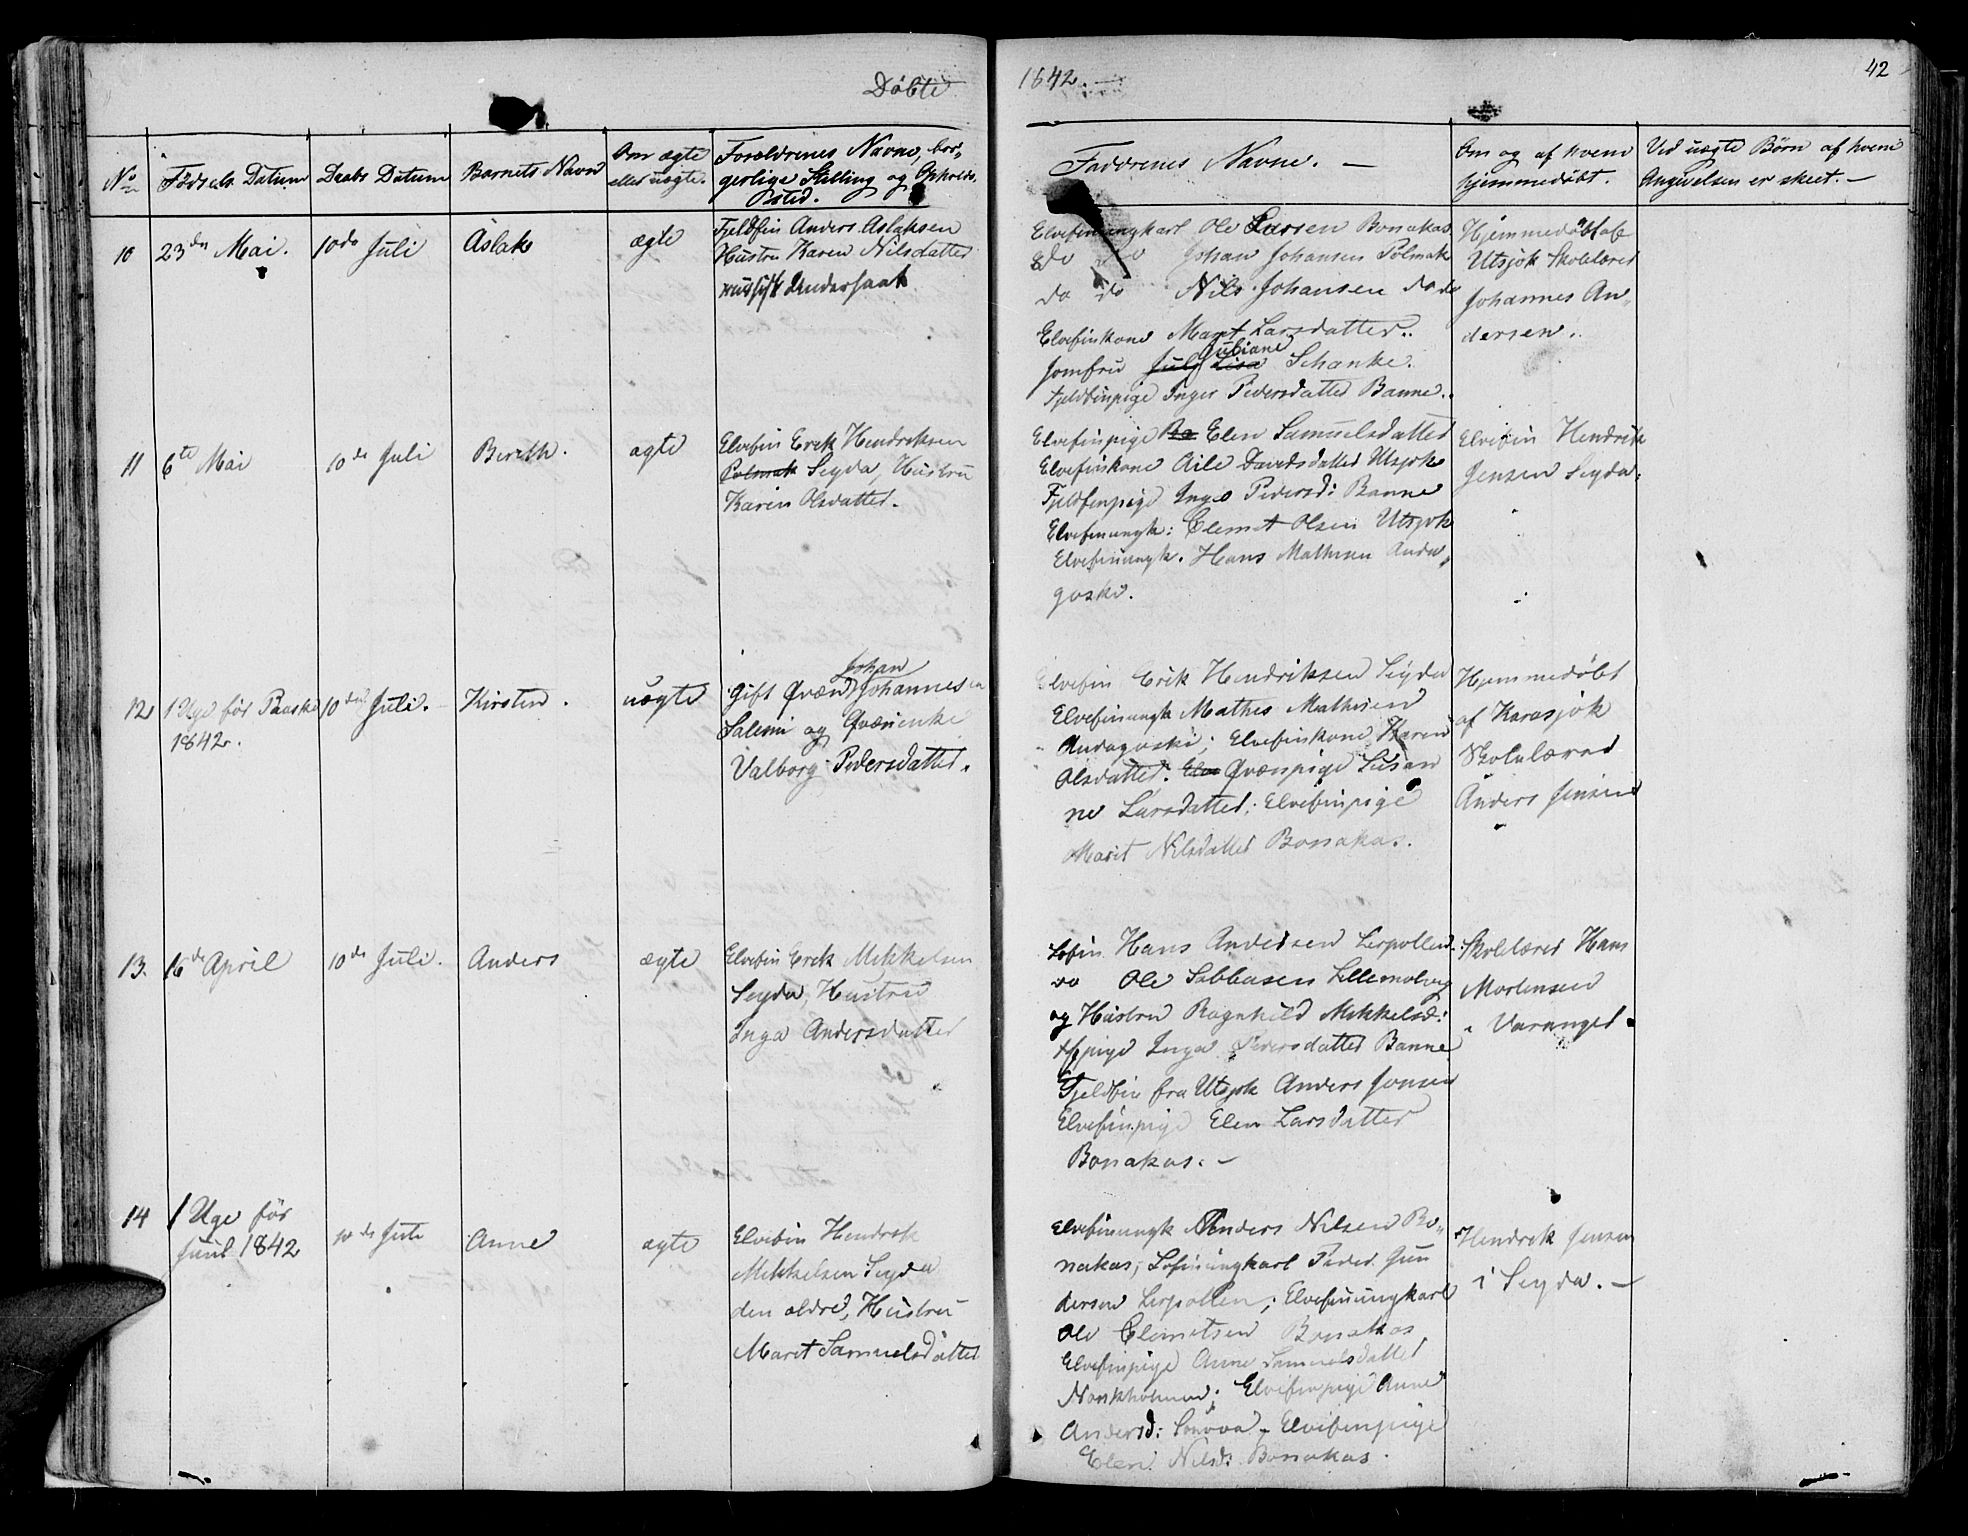 Döbte
1842.
42
No
Födsels Datum
Daabs Datum
Barnets Navn
Om ægte
eller uægte.
Forældrenes Navne, bor-
gerlige Stilling og Opholds-
sted.
Faddrenes Navne. —
Om og af hvem
hjemmedøbt.
Ved uægte Børn af hvem
Angivelsen er skeet. —
10
23de Mai.
10de Juli
Aslak
ægte
Fjeldfin Anders Aslaksen
Hustru Karen Nilsdatter
russisk Undersaat
Elvefinungkarl Ole Larsen Bonakas
do do Johan Johansen Polmak
do do Nils Johansen do do
Elvefinkone Maret Larsdatter.
Jomfru Juliane Schanke.
Fjeldfinpige Inger Pedersdatter Banne.
Hjemmedøbt af
Utsjok Skolelærer
Johannes An-
dersen.
11
6te Mai
10de Juli
Bereth.
ægte
Elvefin Erik Hendriksen
Polmak Seyda, Hustru
Karen Olsdatter.
Elvefinpige Elen Samuelsdatter
Elvefinkone Aile Davidsdatter Utsjok
Fjeldfinpige Inge Pedersd: Banne
Elvefinungk: Clemet Olsen Utsjok
Elvefinungk. Hans Mathisen Anda-
goski.
Elvefin Hendrik
Jensen Seyda.
12
1 Uge før Paaske
1842.
10de Juli.
Kirsten.
uægte
Gift Qvæn Johan Johannesen
Salemi og Qvænenke
Valborg Pedersdatter.
Elvefin Erik Hendriksen Seyda
Elvefinungk Mathis Mathisen
Andagoski; Elvefinkone Karen
Olsdatter. Qvænpige Susan
ne Larsdatter; Elvefinpige
Marit Nilsdatter Bonakas.
Hjemmedøbt
af Karasjok
Skolelærer
Anders Jensen
13.
16de April
10de Juli.
Anders
ægte
Elvefin Erik Mikkelsen
Seyda, Hustru
Inga Andersdatter
Søfin Hans Andersen Lerpollen.
do Ole Sabbasen Lillemolvig
og Hustru Ragnhild Mikkelsd:
Ffpige Inga Pedersdatter Banne
Fjeldfin fra Utsjok Anders Jonsen
Elvefinpige Elen Larsdatter
Bonakas. —
Skolelærer Hans
Mortensen
i Varanger.
14
1 Uge før
Juul 1842
10de Juli
Anne
ægte
Elvefin Hendrik
Mikkelsen Seyda
den ældre, Hustru
Maret Samuelsdatter
Elvefinungk Anders Nilsen Bo-
nakas; Søfinungkarl Peder Gun
dersen Lerpollen; Elvefinungkarl
Ole Clemetsen Bonakas
Elvefinpige Anne Samuelsdatter
Norskholmen; Elvefinpige Anne
Andersd: Elvefinpige
Elen Nilsd: Bonakas.
Hendrik Jensen
i Seyda. —